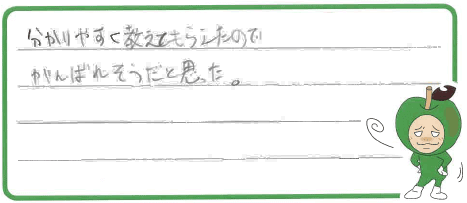 分かりやすく教えてもらえたので
がんばれそうだと思った。